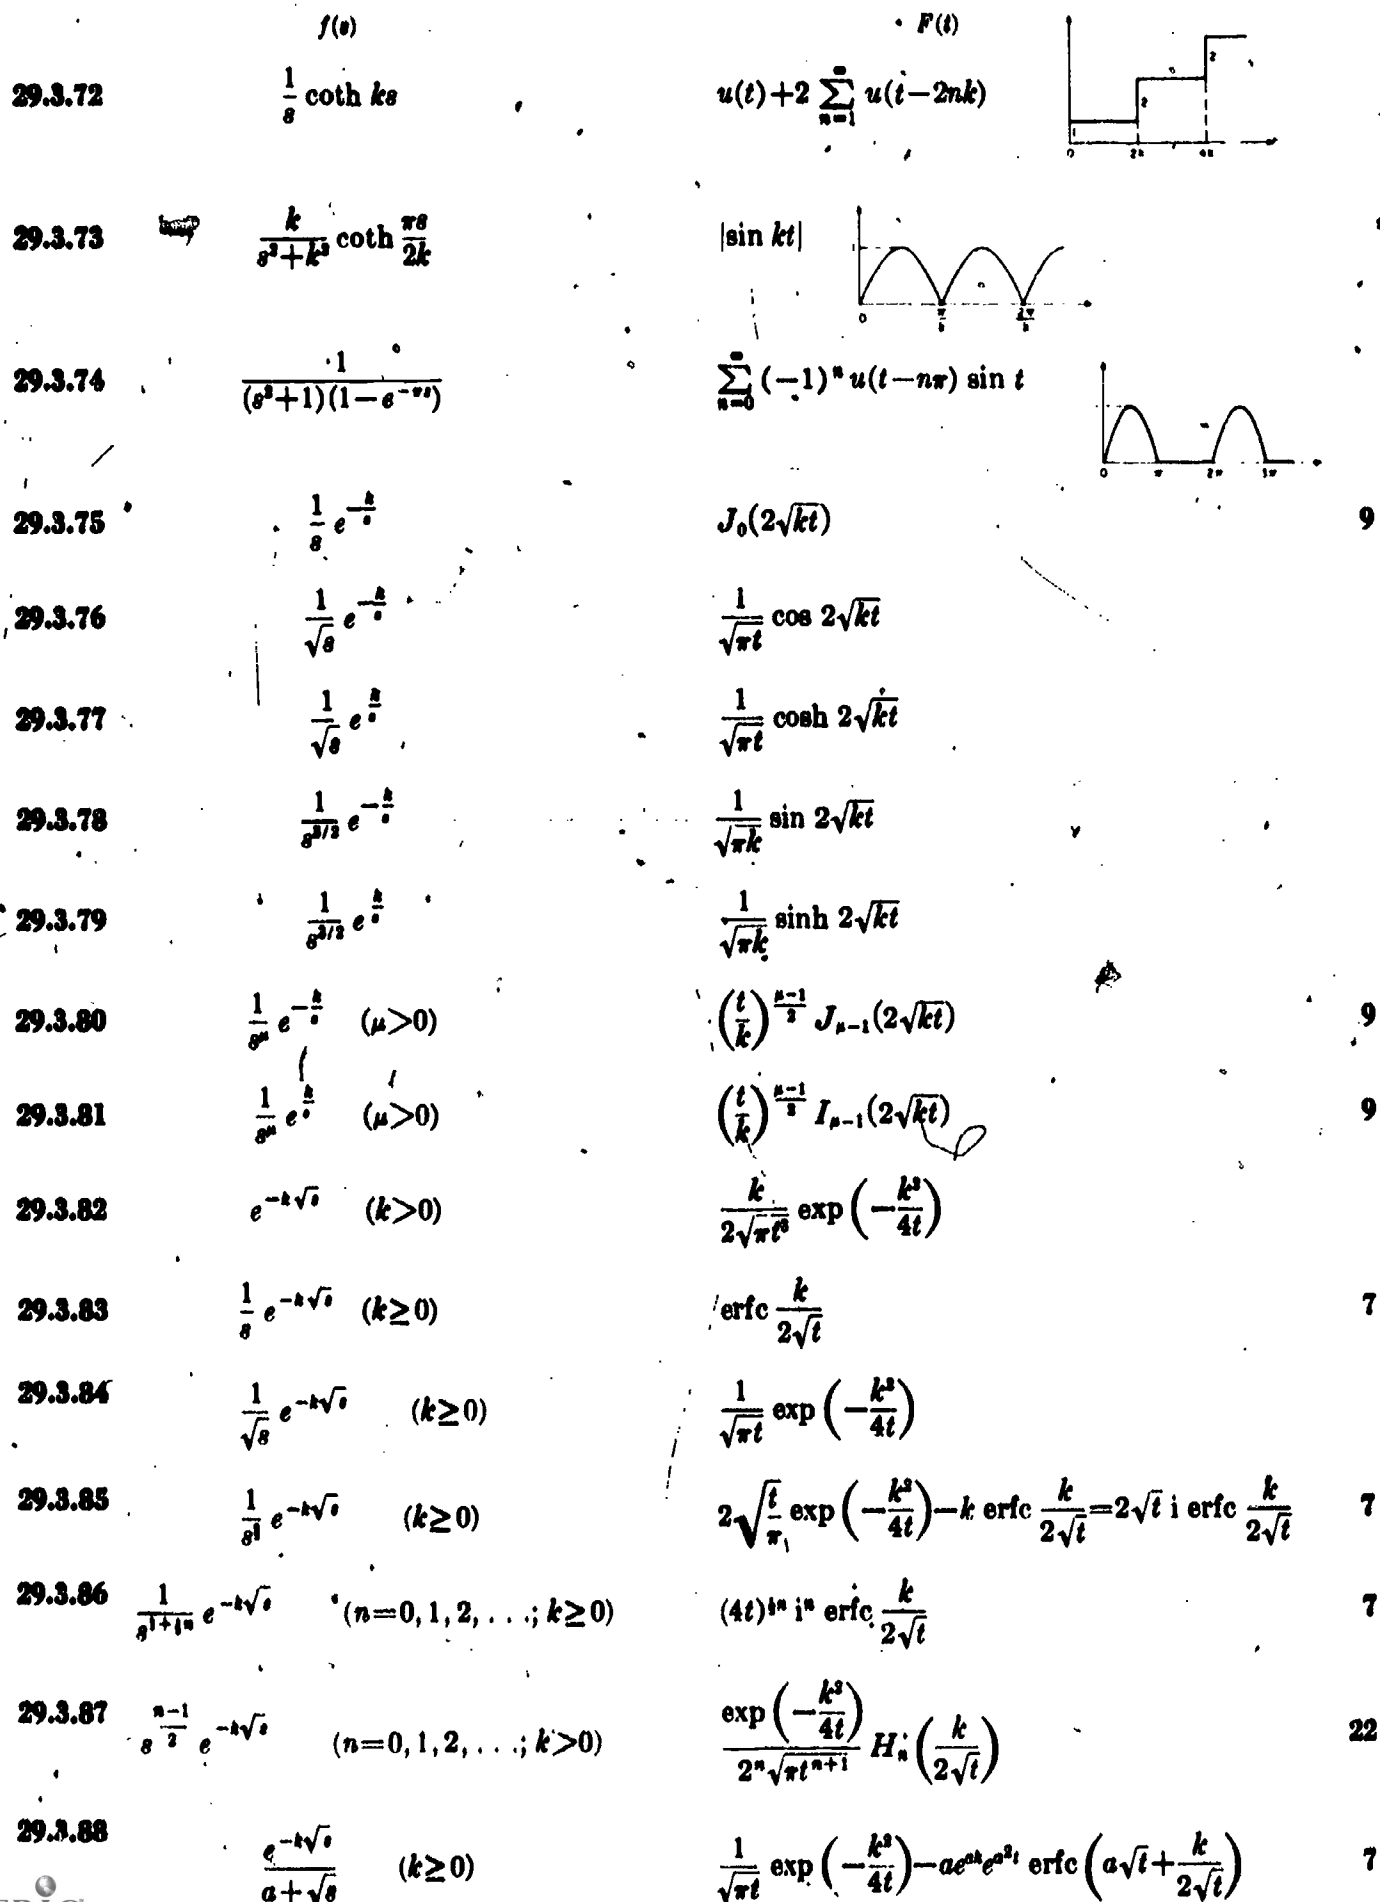 f(s) F(t)
29.3.72 \frac{1}{s} coth ks u(t)+2 \sum_{n=1}^{∞} u(t−2nk)
2
2
1
0 2k 4k
29.3.73 \frac{k}{s^2+k^2} coth \frac{πs}{2k} |sin kt|
1
0 \frac{π}{k} \frac{2π}{k}
29.3.74 \frac{1}{(s^2+1)(1−e^{−πs})} \sum_{n=0}^{∞} (−1)^n u(t−nπ) sin t
0 π 2π 3π
29.3.75 \frac{1}{s} e^{−\frac{k}{s}} J_0(2\sqrt{kt}) 9
29.3.76 \frac{1}{\sqrt{s}} e^{−\frac{k}{s}} \frac{1}{\sqrt{πt}} cos 2\sqrt{kt}
29.3.77 \frac{1}{\sqrt{s}} e^{\frac{k}{s}} \frac{1}{\sqrt{πt}} cosh 2\sqrt{kt}
29.3.78 \frac{1}{s^{3/2}} e^{−\frac{k}{s}} \frac{1}{\sqrt{πk}} sin 2\sqrt{kt}
29.3.79 \frac{1}{s^{3/2}} e^{\frac{k}{s}} \frac{1}{\sqrt{πk}} sinh 2\sqrt{kt}
29.3.80 \frac{1}{s^μ} e^{−\frac{k}{s}} (μ>0) (\frac{t}{k})^{\frac{μ−1}{2}} J_{μ−1}(2\sqrt{kt}) 9
29.3.81 \frac{1}{s^μ} e^{\frac{k}{s}} (μ>0) (\frac{t}{k})^{\frac{μ−1}{2}} I_{μ−1}(2\sqrt{kt}) 9
29.3.82 e^{−k\sqrt{s}} (k>0) \frac{k}{2\sqrt{πt^3}} exp (−\frac{k^2}{4t})
29.3.83 \frac{1}{s} e^{−k\sqrt{s}} (k≥0) erfc \frac{k}{2\sqrt{t}} 7
29.3.84 \frac{1}{\sqrt{s}} e^{−k\sqrt{s}} (k≥0) \frac{1}{\sqrt{πt}} exp (−\frac{k^2}{4t})
29.3.85 \frac{1}{s^{\frac{3}{2}}} e^{−k\sqrt{s}} (k≥0) 2\sqrt{\frac{t}{π}} exp (−\frac{k^2}{4t})−k erfc \frac{k}{2\sqrt{t}}=2\sqrt{t} i erfc \frac{k}{2\sqrt{t}} 7
29.3.86 \frac{1}{s^{1+\frac{1}{2}n}} e^{−k\sqrt{s}} (n=0, 1, 2, . . .; k≥0) (4t)^{\frac{1}{2}n} i^n erfc \frac{k}{2\sqrt{t}} 7
29.3.87 s^{\frac{n−1}{2}} e^{−k\sqrt{s}} (n=0, 1, 2, . . .; k>0) \frac{exp (−\frac{k^2}{4t})}{2^n\sqrt{πt^{n+1}}} H_n (\frac{k}{2\sqrt{t}}) 22
29.3.88 \frac{e^{−k\sqrt{s}}}{a+\sqrt{s}} (k≥0) \frac{1}{\sqrt{πt}} exp (−\frac{k^2}{4t})−ae^{ak}e^{a^2t} erfc (a\sqrt{t}+\frac{k}{2\sqrt{t}}) 7